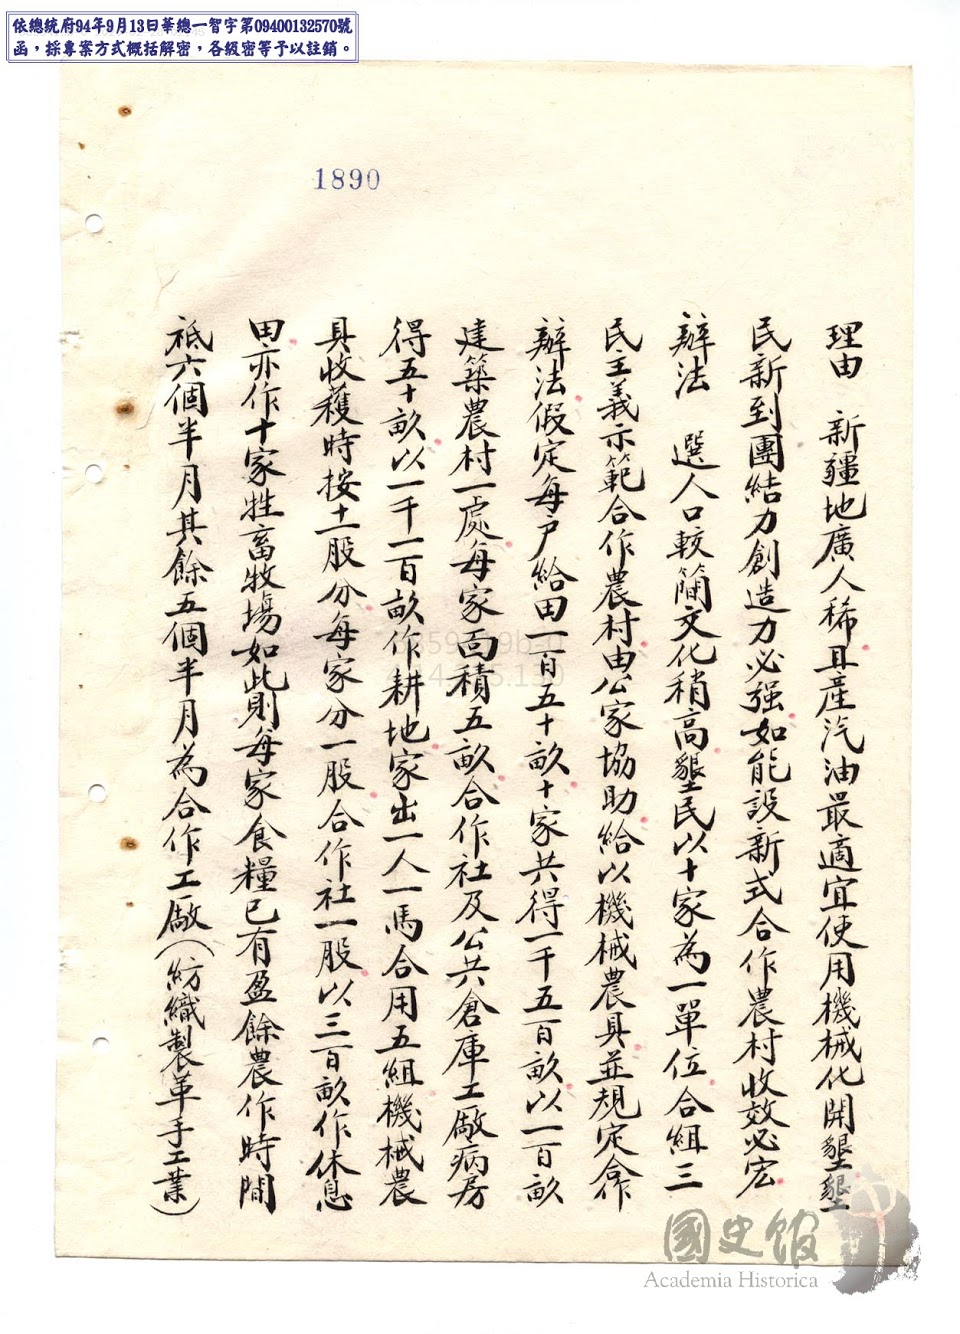 依總統府94年9月13日華總一智字第09400132570號
函，採專案方式概括解密，各級密等予以註銷。
1890
理由　新疆地廣人稀且產汽油最適宜使用機械化開墾墾
民新到團結力創造力必強如能設新式合作農村收效必宏
辦法　選人口較簡文化稍高墾民以十家為一單位合組三
民主義示範合作農村由公家協助給以機械農具並規定合作
辦法假定每戶給田一百五十畝十家共得一千五百畝以一百畝
建築農村一處每家面積五畝合作社及公共倉庫工廠病房
得五十畝以一千一百畝作耕地家出一人一馬合用五組機械農
具收穫時按十一股分每家分一股合作社一股以三百畝作休息
田亦作十家牲畜牧場如此則每家食糧已有盈餘農作時間
祗六個半月其餘五個半月為合作工廠（紡織製革手工業）
國史館
Academia Historica